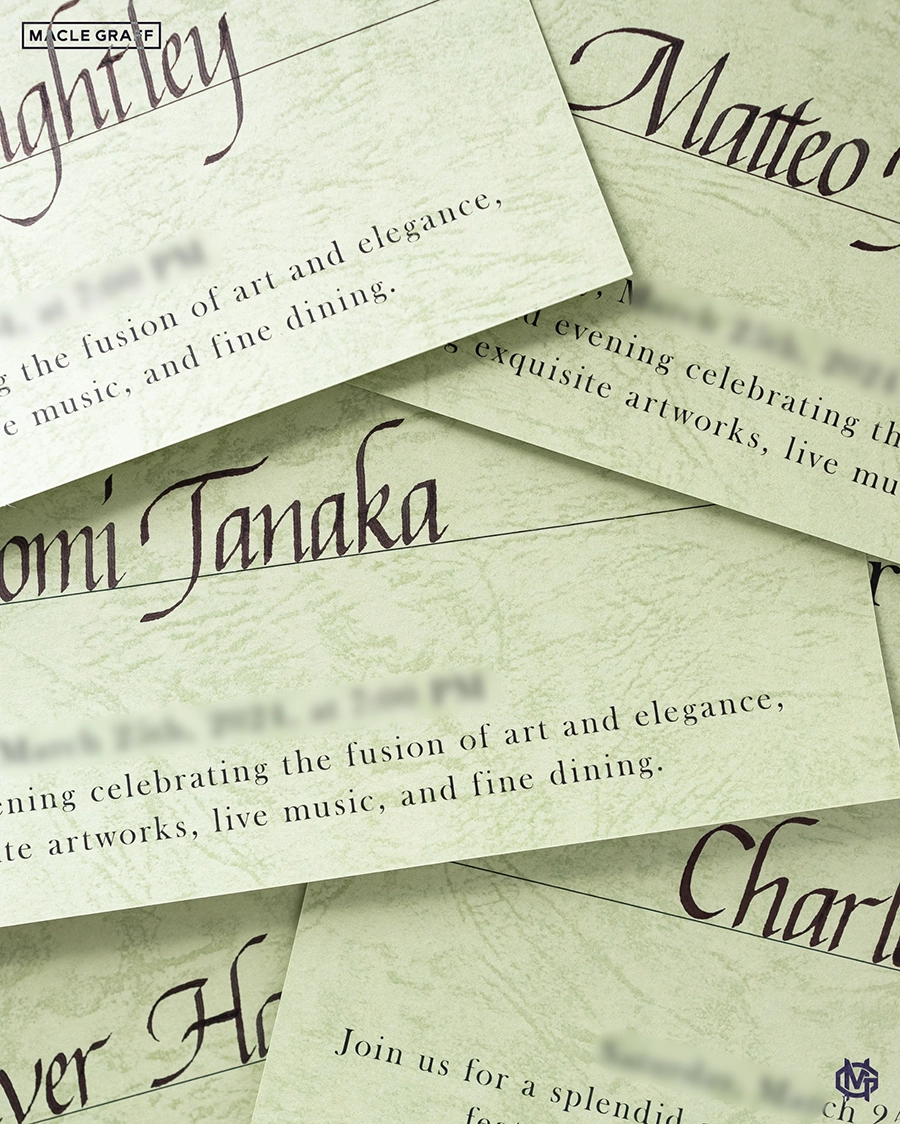 MACLE GRAFF
ghtley
g the fusion of art and elegance,
e music, and fine dining.
Matteo
d evening celebrating th
g exquisite artworks, live mu
omi Tanaka
March 25th, 2024, at 7:00 PM
ening celebrating the fusion of art and elegance,
ite artworks, live music, and fine dining.
Charl
ver Ha
Join us for a splendid